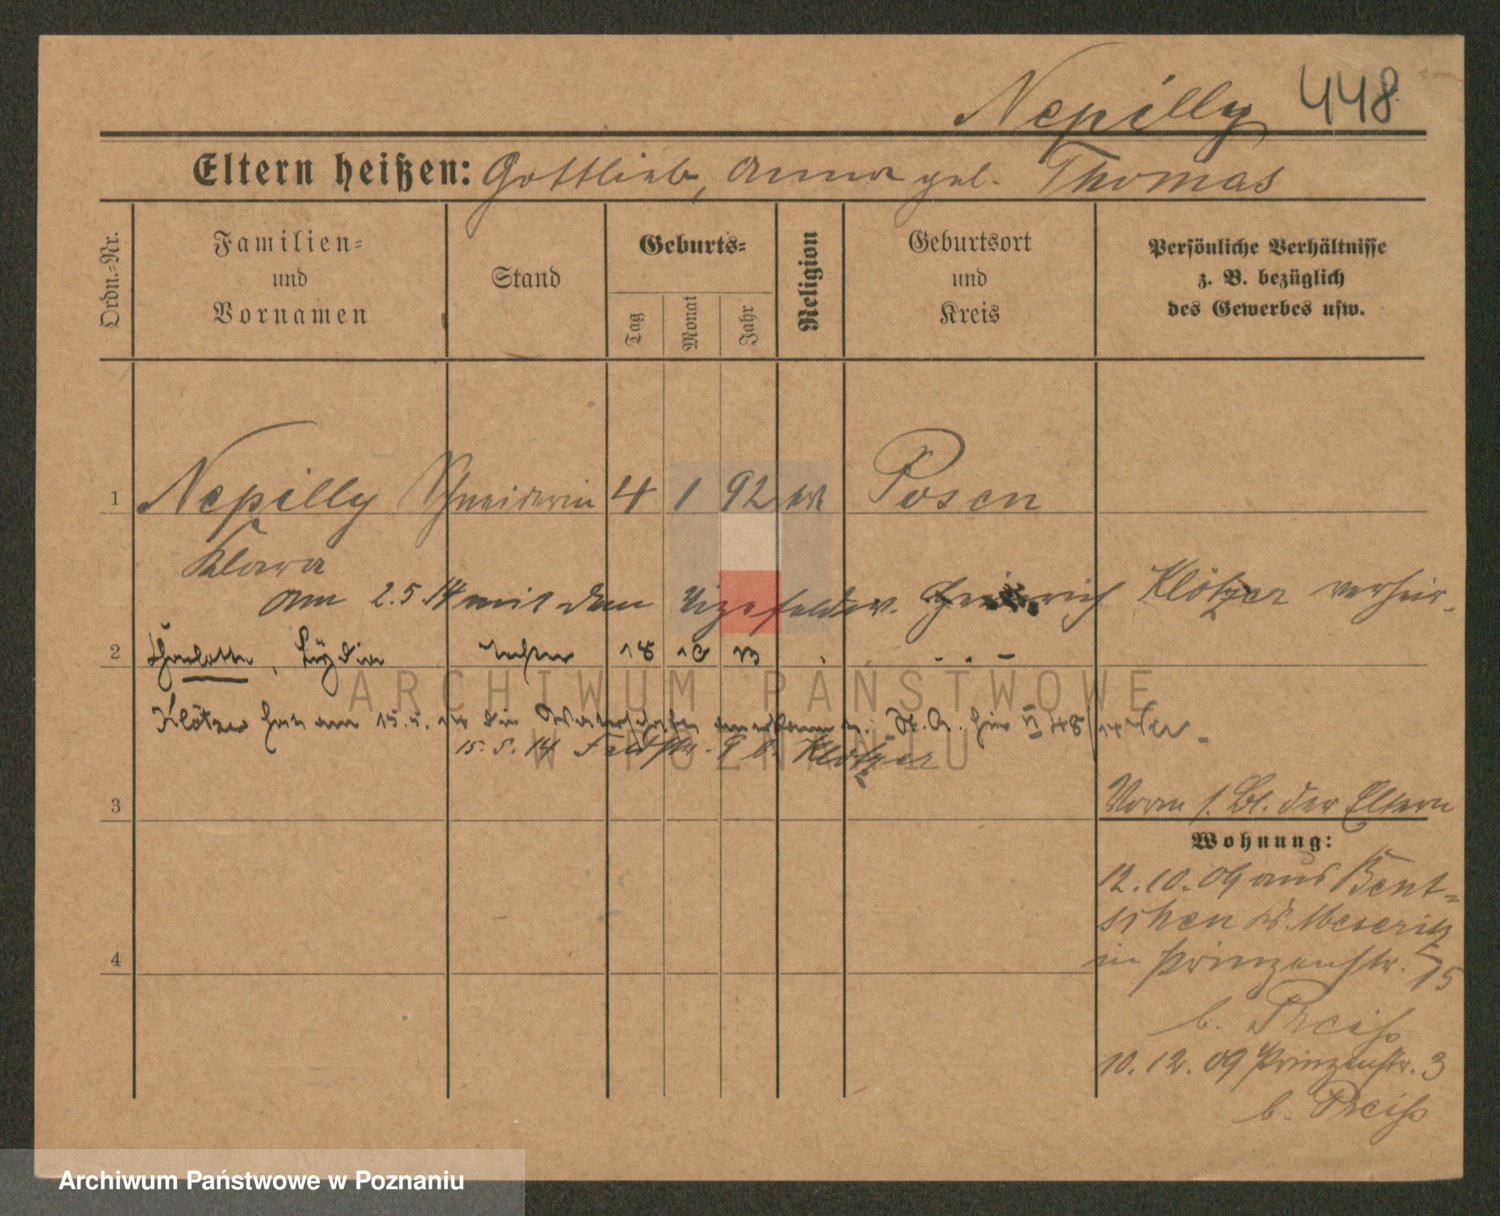 Nepilly 448
Eltern heißen: Gottlieb, Anna geb. Thomas
Ordn.=Nr.
Familien=
und
Vornamen
Stand
Geburts=
Tag
Monat
Jahr
Religion
Geburtsort
und
Kreis
Persönliche Verhältnisse
z. B. bezüglich
des Gewerbes usw.
1 Nepilly Schneiderin 4 1 92 ev Posen
Klara
am 2.5.14 mit dem Vizefeldw. Heinrich Klötzer verheir.
2 Charlotte, Lydia Tochter 18 10 13
Klötzer hat am 15.5.14 die Vaterschaft anerkannt
15.5.14 Feldstr. 9 b. Klötzer
3 Vorm s. Bl. der Eltern
Wohnung:
12.10.09 aus Bent=
schen Kr. Meseritz
4 in Prinzenstr. 5
b. Preiss
10.12.09 Prinzenstr. 3
b. Preiss
ARCHIWUM PAŃSTWOWE
W POZNANIU
Archiwum Państwowe w Poznaniu